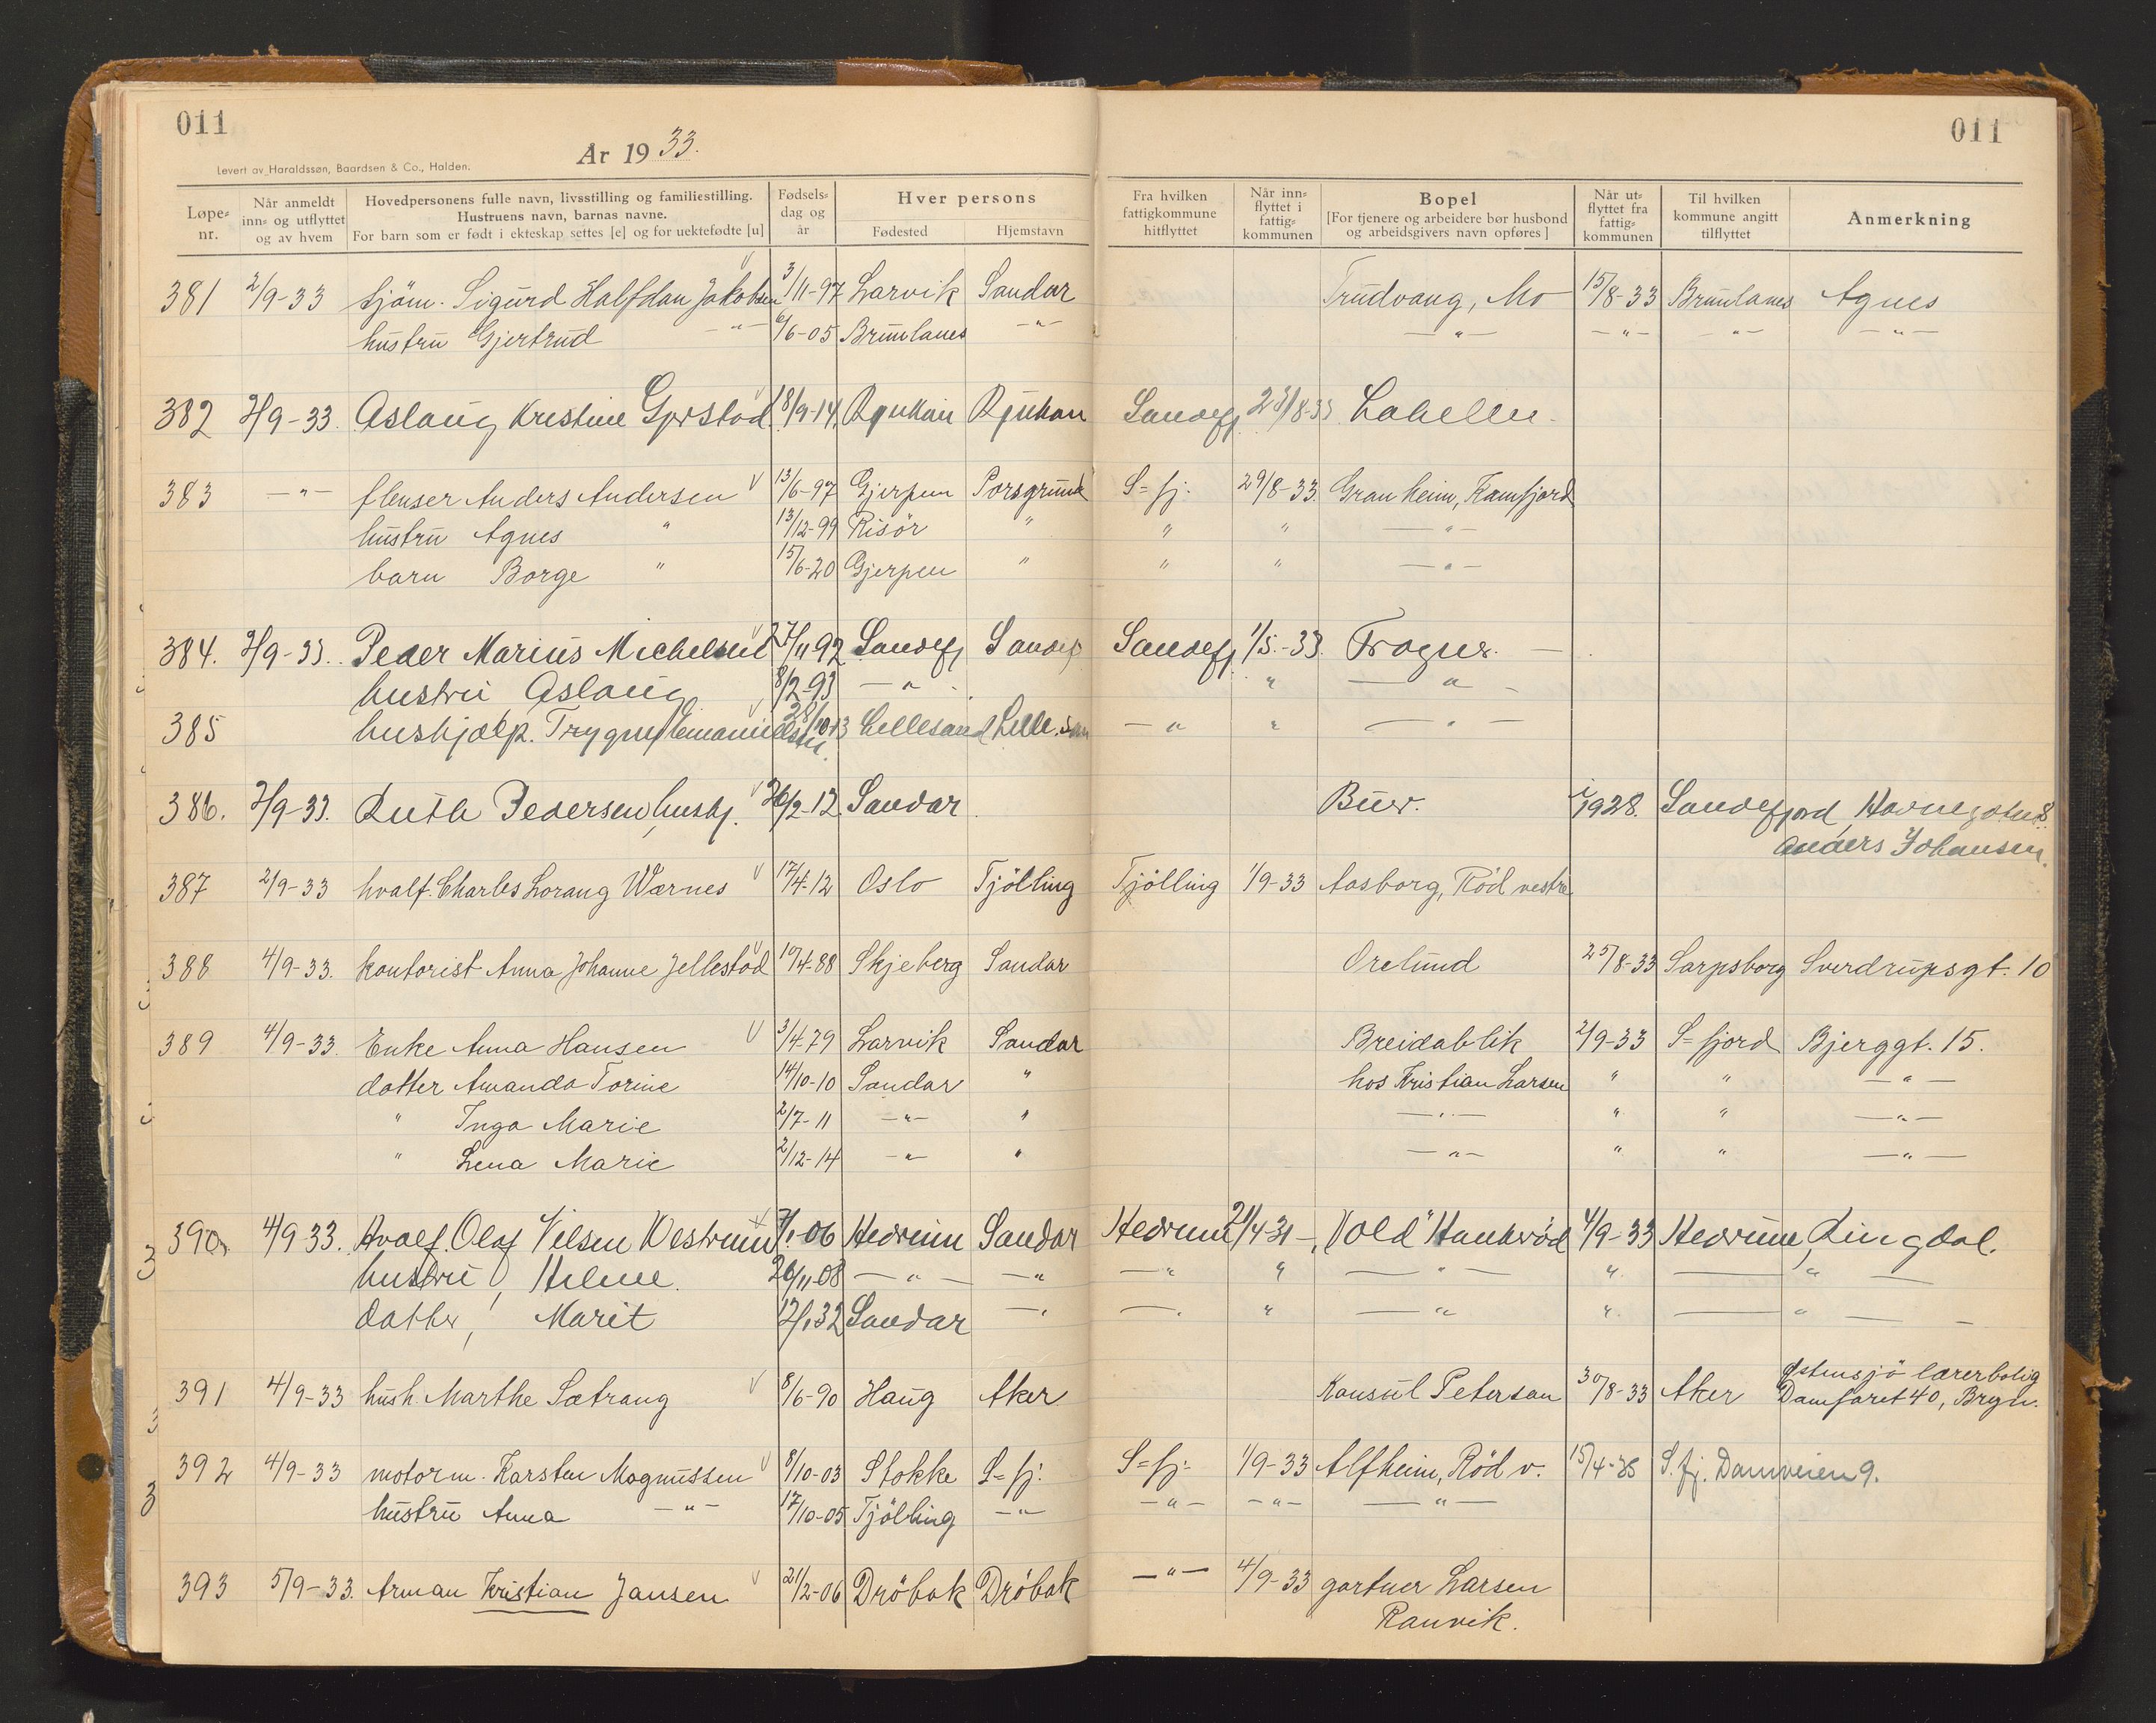 011
011
År 1933.
Levert av Haraldssøn, Baardsen & Co., Halden.
Løpe=nr. Når anmeldt inn= og utflyttet og av hvem Hovedpersonens fulle navn, livsstilling og familiestilling. Hustruens navn, barnas navne. For barn som er født i ekteskap settes [e] og for uektefødte [u] Fødsels=dag og år Hver persons Fødested Hjemstavn Fra hvilken fattigkommune hitflyttet Når inn=flyttet i fattig=kommunen Bopel [For tjenere og arbeidere bør husbond og arbeidsgivers navn opføres] Når ut=flyttet fra fattig=kommunen Til hvilken kommune angitt tilflyttet Anmerkning
381 2/9-33 sjöm. Sigurd Halfdan Jakobsen 3/11-97 Larvik Sandar Trudvang, Mo 15/8-33 Brunlanes Agnes
hustru Gjertrud -"- 6/6-05 Brunlanes -"- -"- -"- -"- -"-
382 2/9-33. Aslaug Kristine 18/9-14 Rjukan Rjukan Sandefj. /8-33 Labellu
383 -"- flenser Anders Andersen 13/6-97 Gjerpen Porsgrund S=fj. 29/8-33. Granheim, Kamfjord
hustru Agnes " 13/12-99 Risör " " " -"-
barn Borge " 15/6-20 Gjerpen " " " -"-
384. 2/9-33. Peder Marius Michelsen 27/11 92 Sandefj Sandefj Sandefj 1/5.-33. Frogner.
hustru Aslaug 8/2-93 -"- " -"-
385 hushjælp. Lillesand Lille.san -"- " -"-
386. 2/9-33. Ruth Pedersen, hushj. 26/2-12. Sandar Buer. i 1928. Sandefjord 8.
Anders Johansen.
387 2/9-33 hvalf. Charles Lorang Wærnes 17/4-12 Oslo Tjölling Tjölling 1/9-33 Aasborg, Röd vestre
388 4/9-33. kontorist Anna Johanne Jellestad 10/4-88 Skjeberg Sandar Orelund 25/8-33 Sarpsborg Sverdrupsgt. 10
389 4/9-33. Enke Anna Hansen 3/4-79 Larvik Sandar Breidablik 2/9-33 S=fjord Bjerggt. 15.
datter Amanda Torine 14/10-10 Sandar " hos Kristian Larsen " " -"-
" Inga Marie 2/7-11 -"- " -"- " " -"-
" Lena Marie 2/12-14 -"- " -"- " " -"-
390. 4/9 33. Hvalf. Olaf Nilsen Westrum 7/1-06 Hedrum Sandar Hedrum 21/4 31 -, "Vold" Haukerød 4/9-33 Hedrum, Lingdal.
hustru, Helene. 26/11-08 -"- -"- -"- " -"- " -"-
datter, Marit 12/1 32 Sandar -"- -"- " -"- " -"-
391 4/9-33 hush. Marthe Sætrang 8/6-90 Haug Aker Konsul Peterson 30/8-33 Aker Østensjö lærerbolig
Damfaret 40, Bryn.
392 4/9-33 motorm. Karsten Magnussen 8/10-03 Stokke S=fj. S=fj. 1/9-33 Alfheim, Röd v. 15/4-35 S.fj. Damveien 9.
hustru Anna -"- 17/10-05 Tjölling -"- -"- -"- -"-
393 5/9-33. Arman Kristian Jansen 21/2-06 Dröbak Dröbak -"- 4/9-33 gartner Larsen
Ranvik.